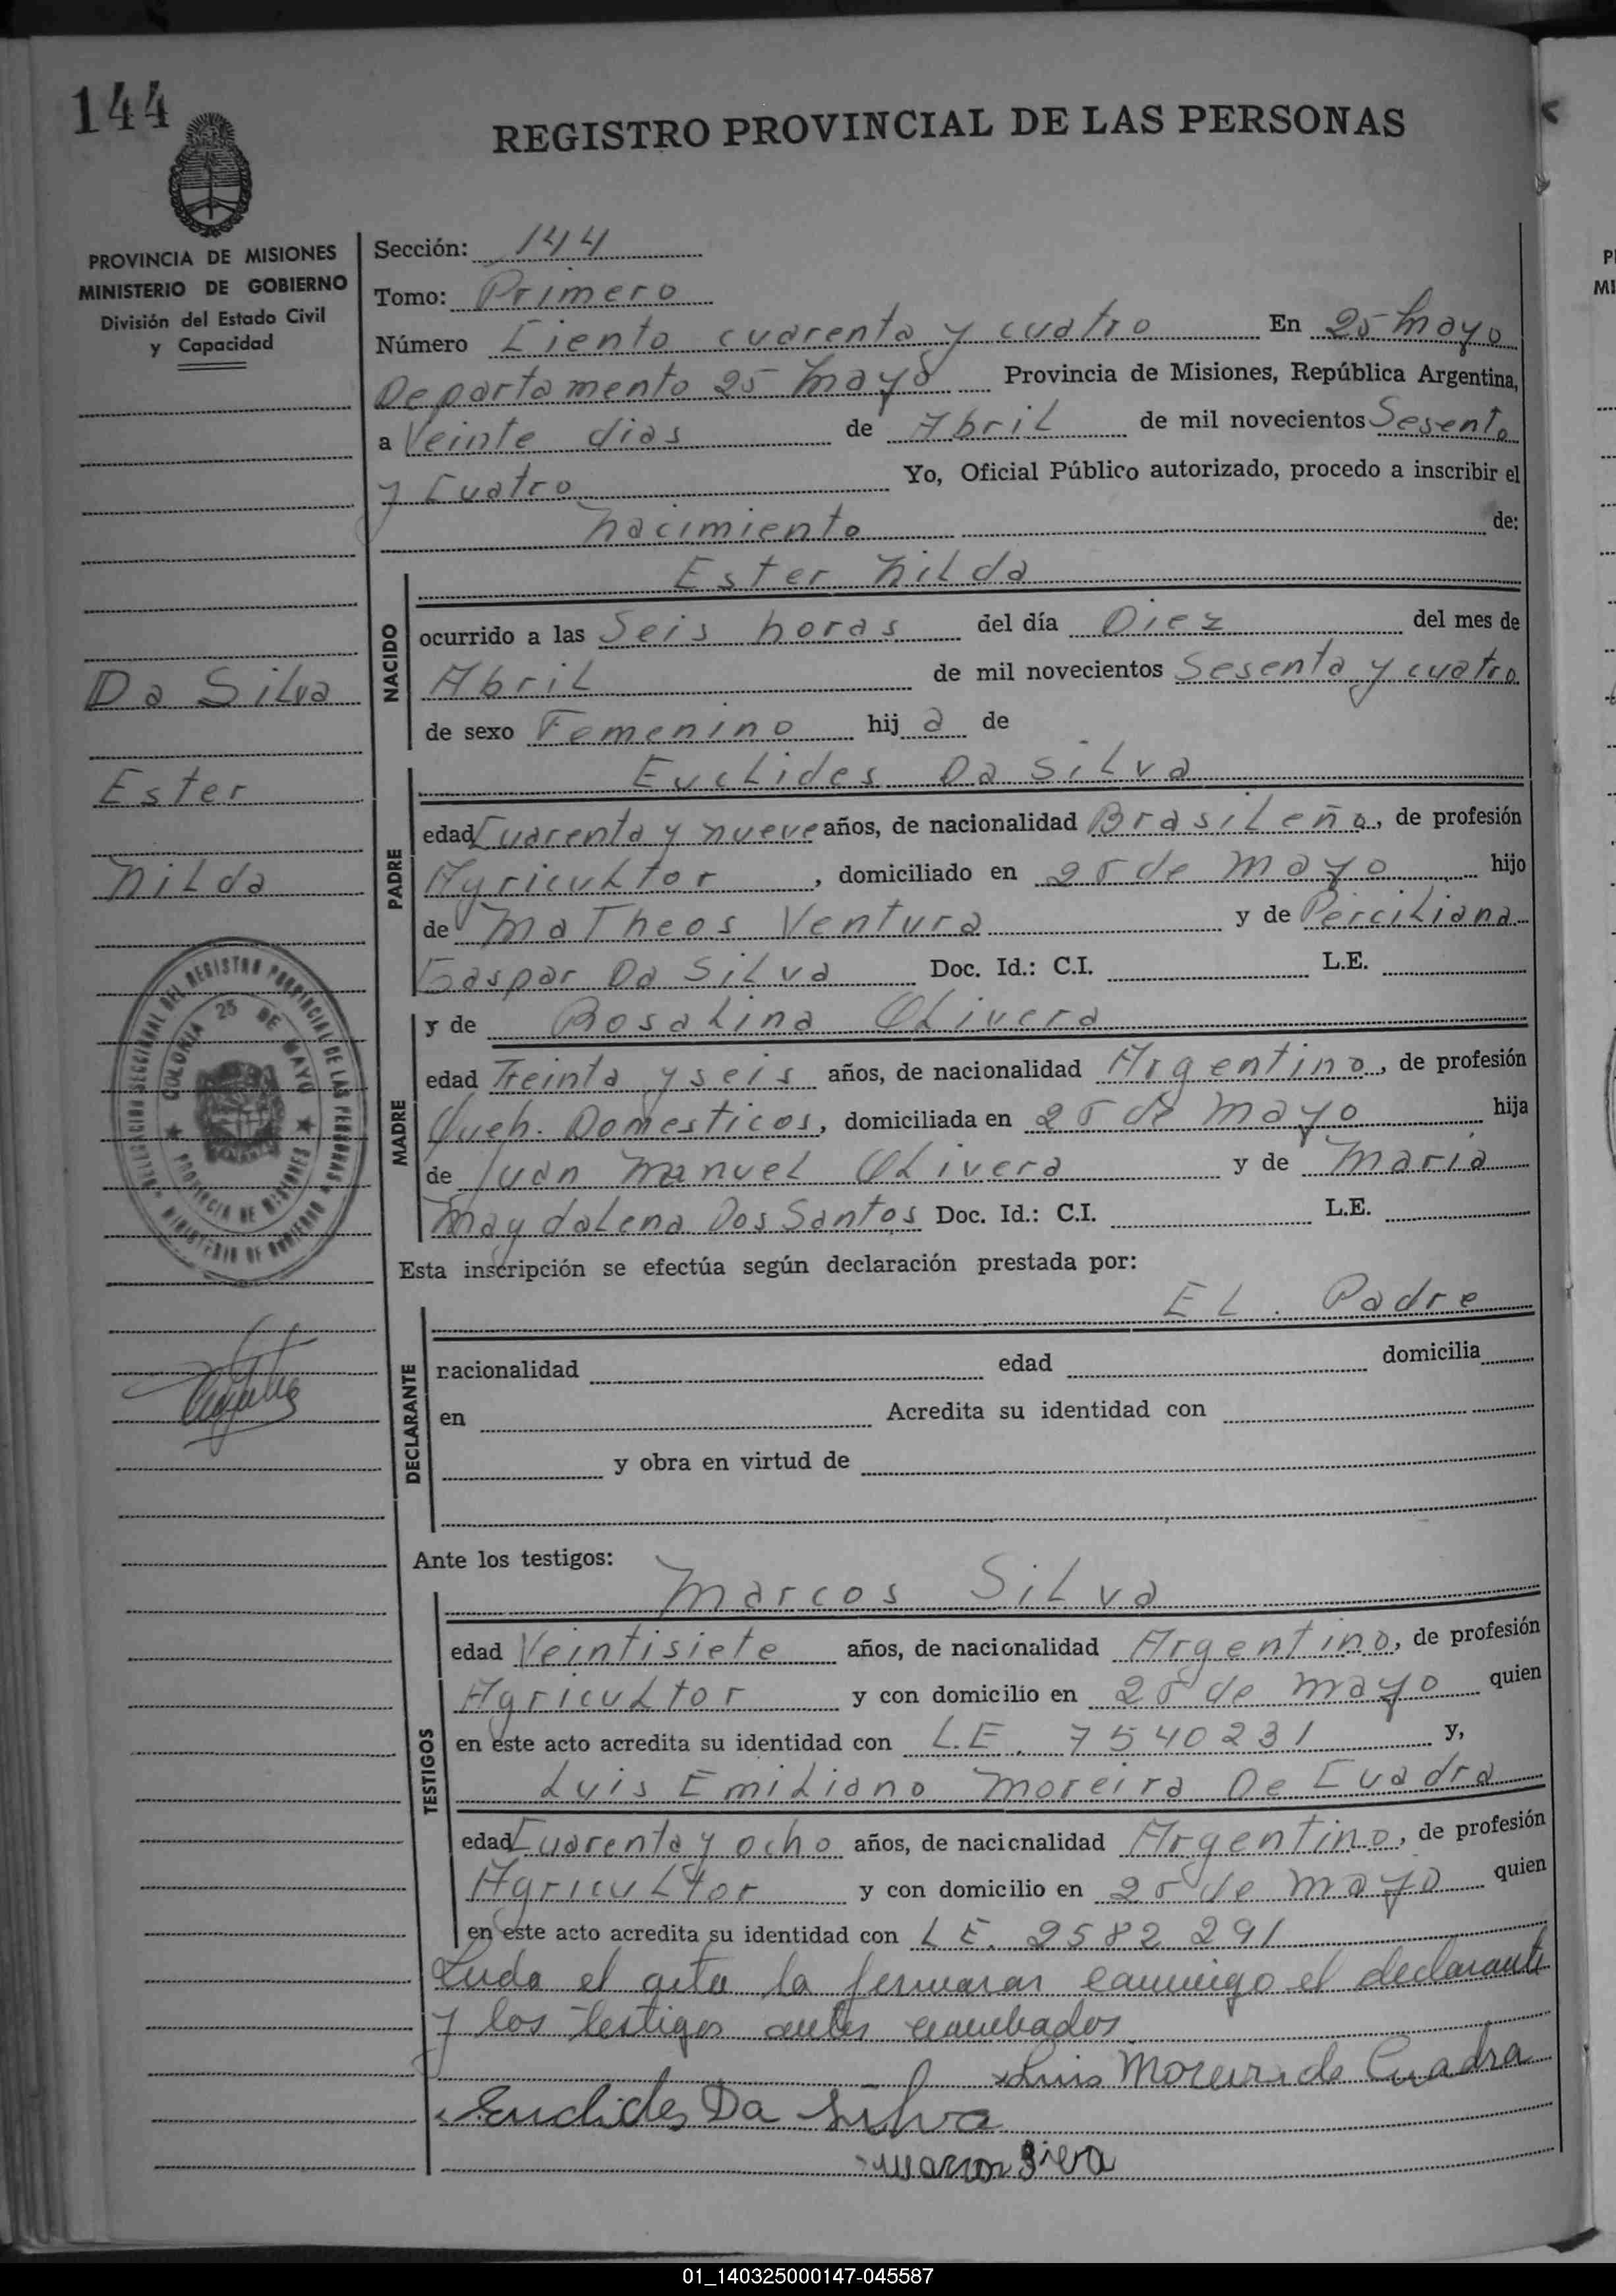 144
REGISTRO PROVINCIAL DE LAS PERSONAS
PROVINCIA DE MISIONES
MINISTERIO DE GOBIERNO
División del Estado Civil
y Capacidad
Da Silva
Ester
Nilda
DELEGACION SECCIONAL DEL REGISTRO PROVINCIAL DE LAS PERSONAS
MINISTERIO DE GOBIERNO
COLONIA 25 DE MAYO
PROVINCIA DE MISIONES
Sección: 144
Tomo: Primero
Número Ciento cuarenta y cuatro En 25 Mayo
Departamento 25 Mayo Provincia de Misiones, República Argentina,
a Veinte dias de Abril de mil novecientos Sesenta
y Cuatro Yo, Oficial Público autorizado, procedo a inscribir el
Nacimiento de:
NACIDO
Ester Nilda
ocurrido a las Seis horas del día Diez del mes de
Abril de mil novecientos Sesenta y cuatro
de sexo Femenino hij a de
PADRE
Euclides Da Silva
edad Cuarenta y nueve años, de nacionalidad Brasileña, de profesión
Agricultor, domiciliado en 25 de Mayo hijo
de Matheos Ventura y de Perciliana
Gaspar Da Silva Doc. Id.: C.I. L.E.
MADRE
y de Rosalina Olivera
edad Treinta y seis años, de nacionalidad Argentino, de profesión
Queh. Domesticos, domiciliada en 25 de Mayo hija
de Juan Manuel Olivera y de Maria
Magdalena Dos Santos Doc. Id.: C.I. L.E.
Esta inscripción se efectúa según declaración prestada por:
DECLARANTE
EL. Padre
nacionalidad edad domicilia
en Acredita su identidad con
y obra en virtud de
Ante los testigos:
TESTIGOS
Marcos Silva
edad Veintisiete años, de nacionalidad Argentino, de profesión
Agricultor y con domicilio en 25 de Mayo quien
en este acto acredita su identidad con L.E. 7540231 y,
Luis Emiliano Moreira De Cuadra
edad Cuarenta y ocho años, de nacionalidad Argentino, de profesión
Agricultor y con domicilio en 25 de Mayo quien
en este acto acredita su identidad con L E. 2582291
el acta la conmigo el declarante
y los testigos antes
Luis Moreira de Cuadra
Euclides Da Silva